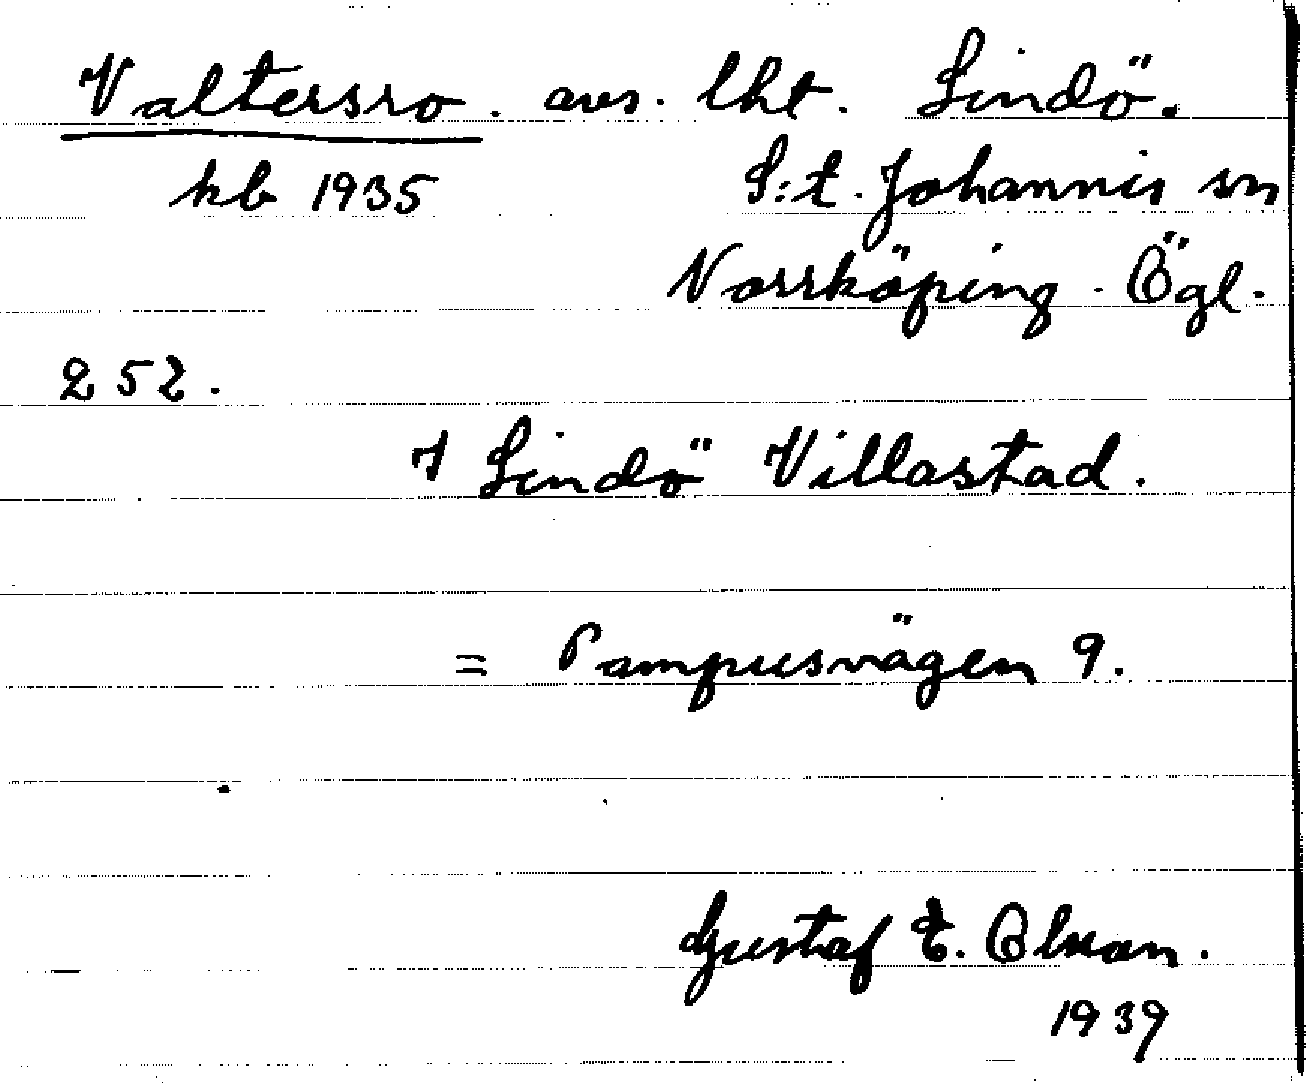 Valtersro. avs. lht. Lindö.
kb 1935 S:t. Johannis sn
Norrköping. Ögl.
252.
I Lindö Villastad.
= Pampusvägen 9.
Gustaf E. Olsson.
1939